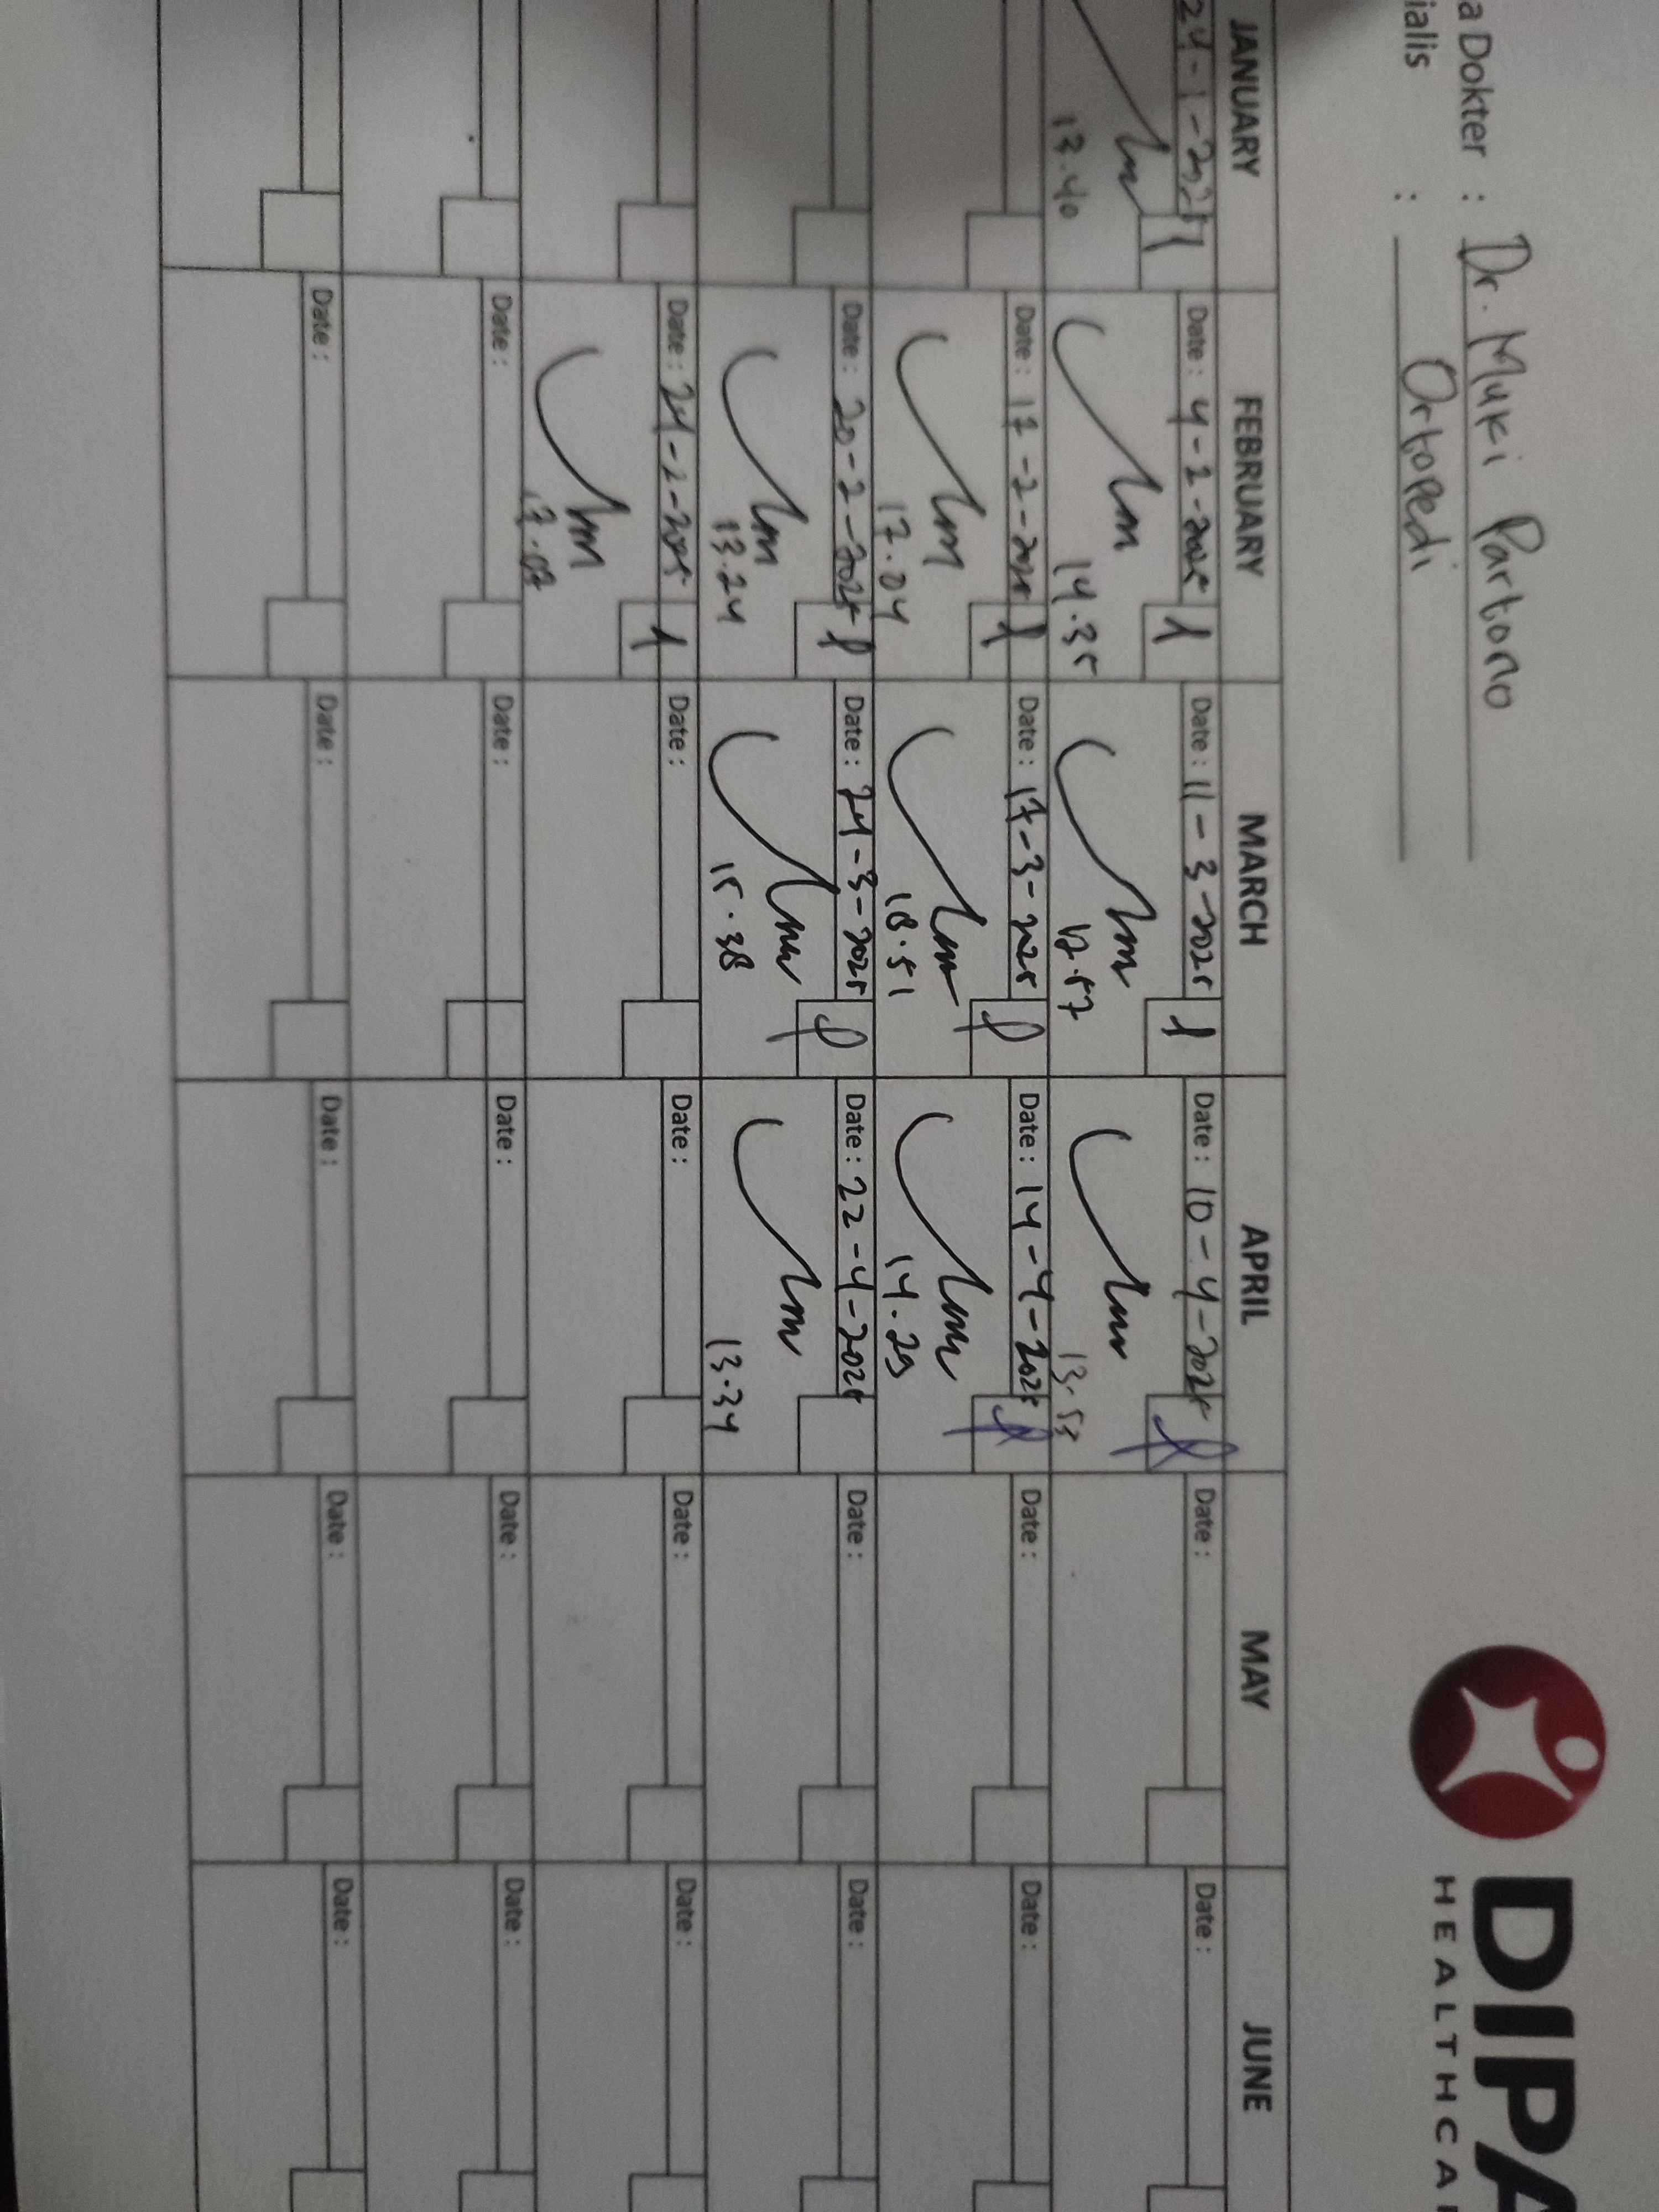 a Dokter : Dr. Muki Partono
ialis : Ortopedi
DIPA
HEALTHCA
JANUARY FEBRUARY MARCH APRIL MAY JUNE
24-1-2025 Date : 4-2-2025 Date : 11-3-2025 Date : 10-4-2025 Date : Date :
13.40 14.35 12.57 13.53
Date : 17-2-2025 Date : 17-3-2025 Date : 14-4-2025 Date : Date :
17.04 18.51 14.29
Date : 20-2-2025 Date : 24-3-2025 Date : 22-4-2025 Date : Date :
13.24 15.38 13.34
Date : 24-2-2025 Date : Date : Date : Date :
17.07
Date : Date : Date : Date : Date :
Date : Date : Date : Date : Date :